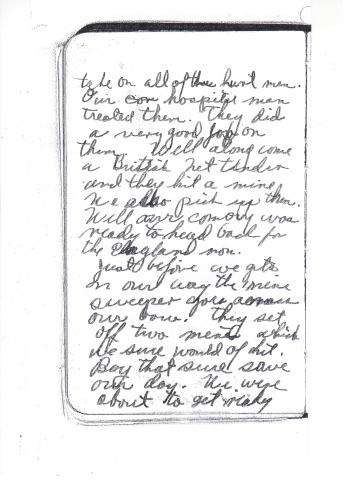 take on all of the hurt men.
Our hospital man
treated them. They did
a very good job on
them. Well along come
a British net tender
and they hit a mine
We also pick up them.
Will our convoy was
ready to head back for
the England now.
Just before we gets
In our way the mine
sweeper goes across
our bow. They set
off two mines which
we sure would of hit.
Boy that sure save
our day. We were
about to get ready